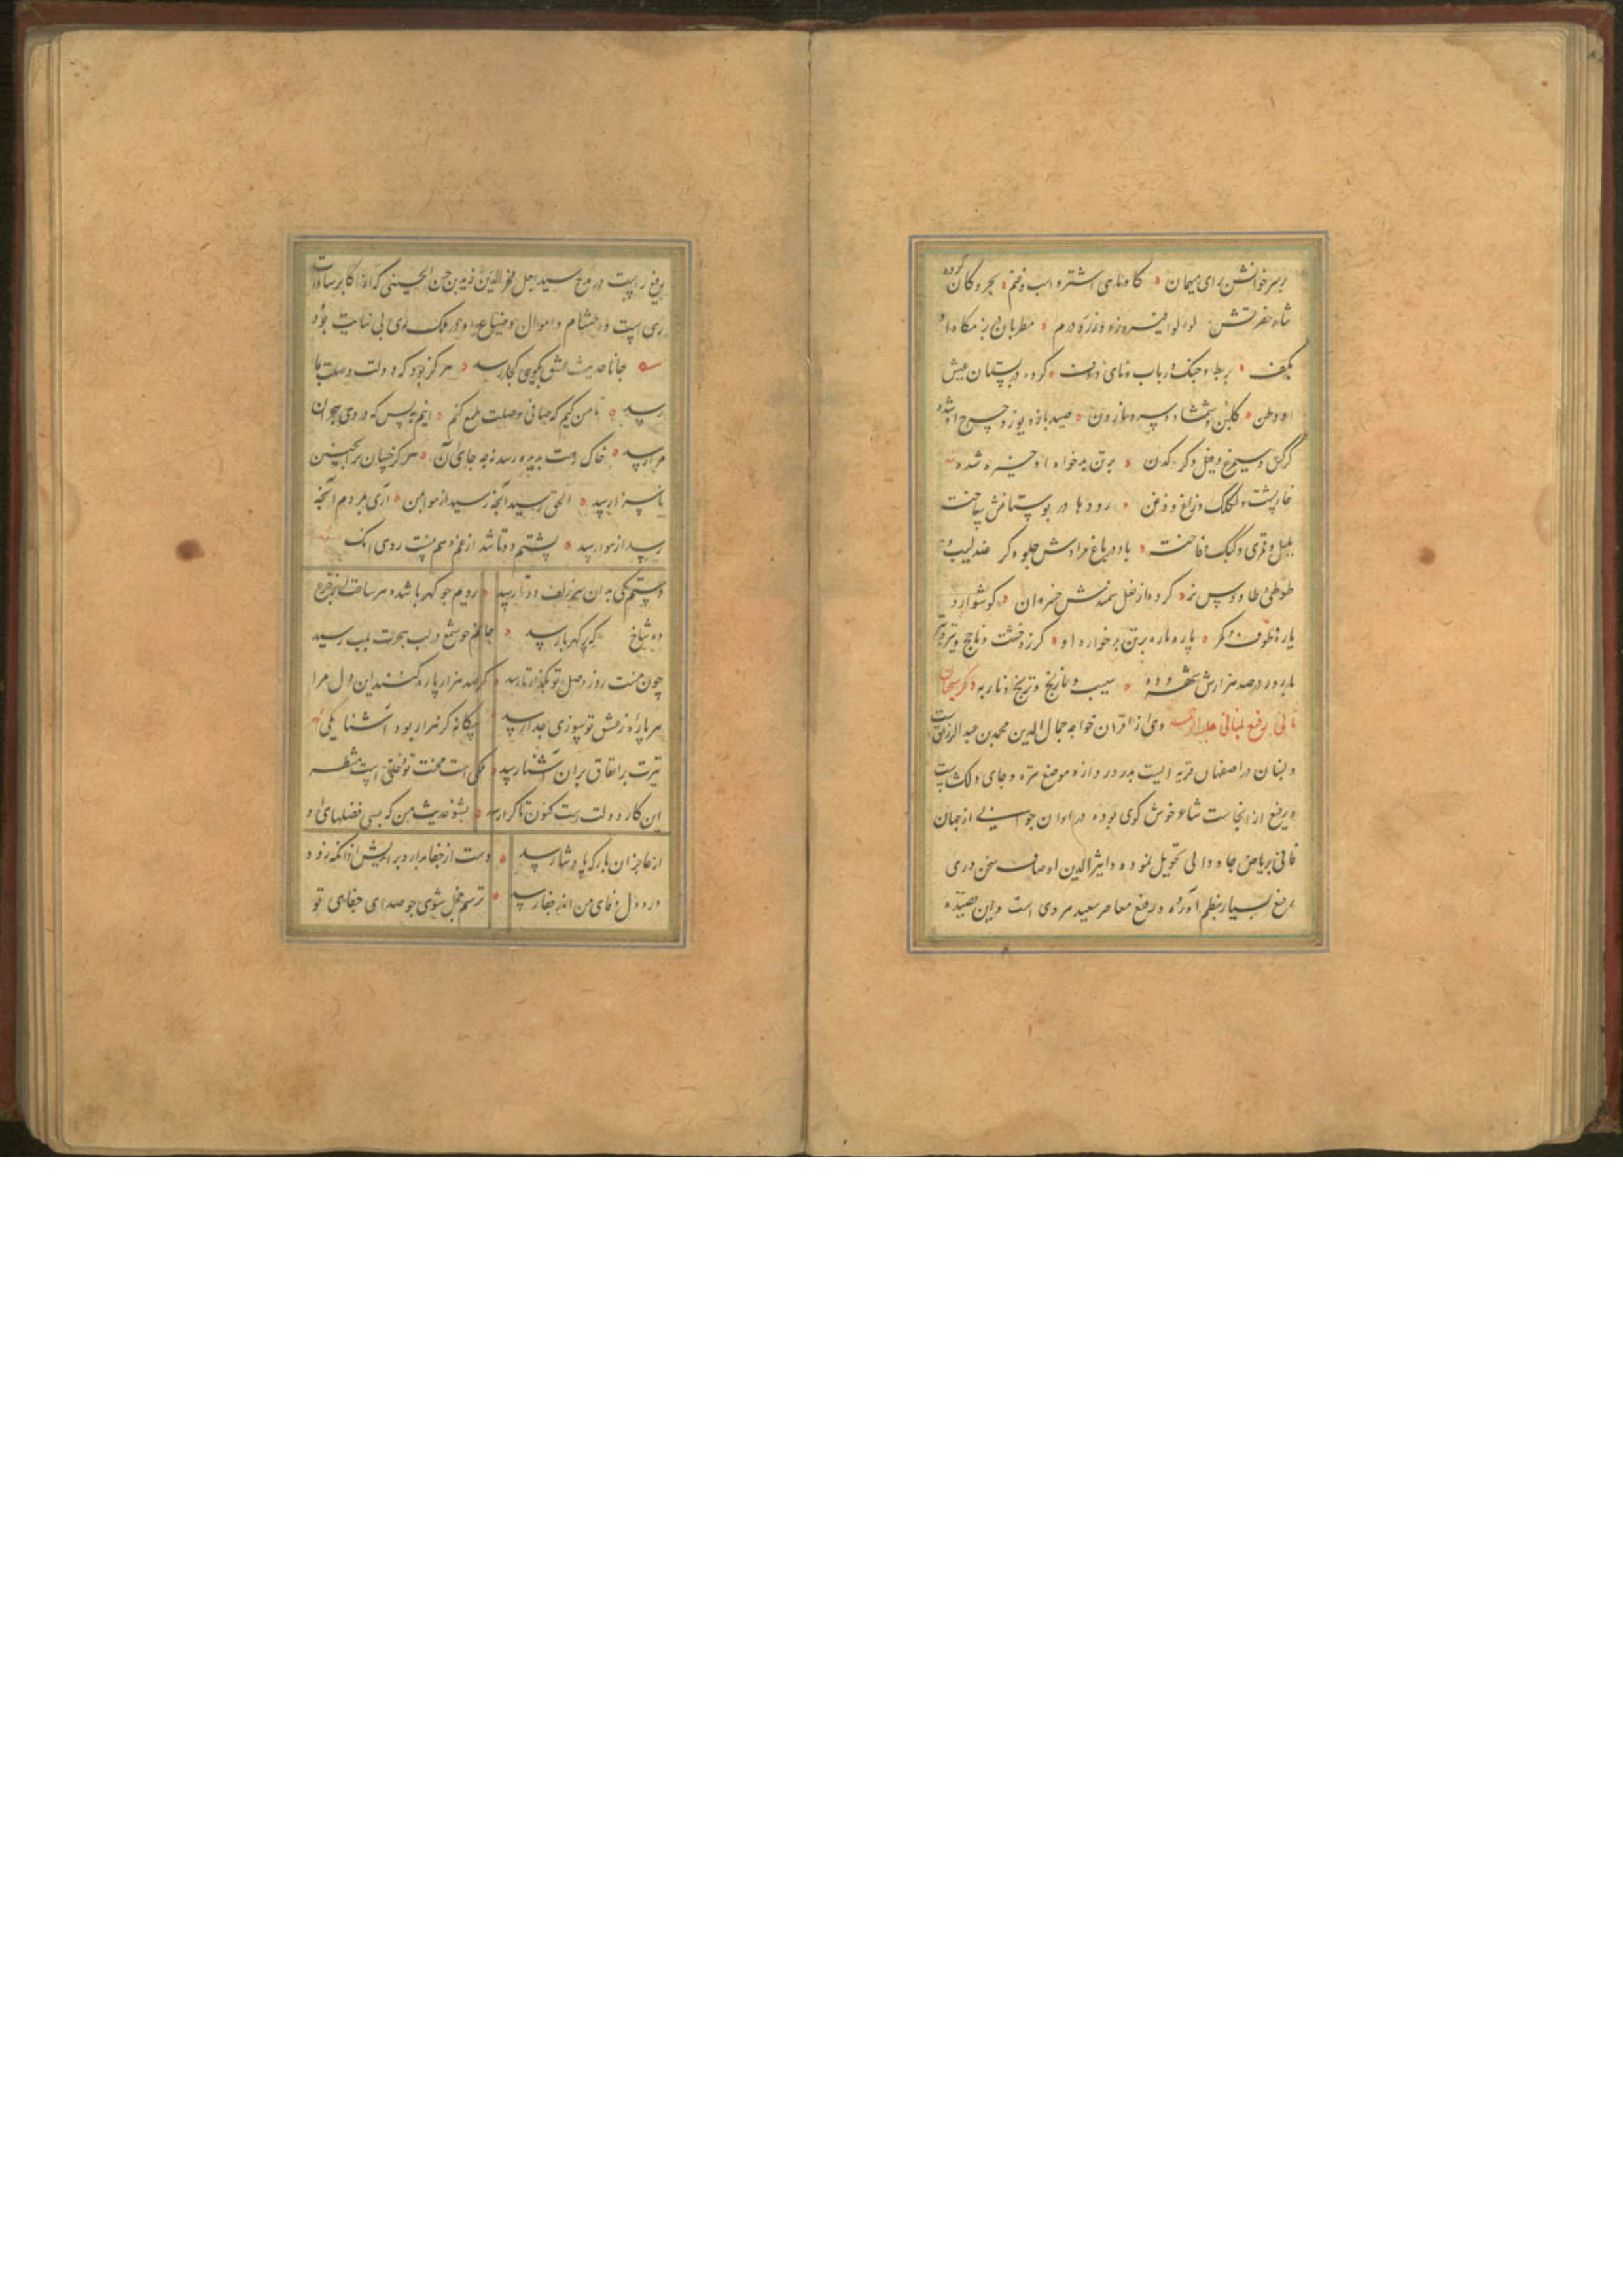 بر سر خوانش برای میهمان ٥ گاو ماهی اشتر و اسب و غنم ٥ بحر و کان کرده
نثار حضرتش لولو فیروزه و زر و درم ٥ مطربان بزمگاه او
بکف ٥ بربط و چنگ و رباب و نای و دف ٥ کرده در بستان عیش
او وطن ٥ گلبن و شمشاد و سرو و نارون ٥ صید باز و یوز و چرخ او شده
کرکس و سیمرغ و فیل و کرکدن ٥ بر تن بدخواه او خیره شده
خارپشت و لکلک و زاغ و زغن ٥ رودها در بوستانش ساخت
بلبل و قمری و کبک و فاخته ٥ باد در باغ مرادش جلوه گر عندلیب و
طوطی و طاووس نر ٥ کرده از نعل سمندش خسروان ٥ گوشوار و
یاره و طوق و کمر ٥ پاره پاره بر تن بدخواره او ٥ گرز و خشت و ناچخ و تیر و تبر
بارور در صد هزارش شهر و ده ٥ سیب و نارنج و ترنج و نار و به ٥ ذکر سحبان
ثانی رفیع لنبانی علیه الرحمه وی از اقران خواجه جمال الدین محمد بن عبدالرزاق است
و لنبان در اصفهان قریه ایست بدر دروازه موضع منزه و جای دلکش است
و رفیع از انجاست شاعر خوش گوی بوده در اوان جوانی از جهان
فانی بریاض جاودانی تحویل نموده و اثیر الدین اوصاف سخن وری
رفیع بسیار بنظم آورده و رفیع معاصر سعید هروی است و این قصیده
رفیع راست در مدح سید اجل فخر الدین زید بن حسن الحسینی که از اکابر سادات
ری است و احتشام و اموال و ضیاع او در ملک ری بی نهایت بود
جانا حدیث عشق بگوی کجا رسد ٥ هرگز بود که دولت وصلت بما
رسد ٥ تا من کیم که صافی وصلت طمع کنم ٥ اینم نه بس که دردی هجران
مرا رسد ٥ خاک درت بدیده رسد نه بجای آن ٥ هرگز چنان بر چنین
ناسزا رسد ٥ الحق رسید آنچه رسید از هوا بمن ٥ آری بمردم آنچه
رسد از هوا رسد ٥ پشتم دوتا شد از غم و هم نیست روی انک
دستم یکی به ان سر زلف دوتا رسد ٥ رویم چو کهربا شد و هر ساعت از جزع
ده شاخ گهر بار رسد ٥ جانم چو شمع در لب هجرت بلب رسید
چون نیست روز وصل تو بگذار تا رسد ٥ گر صد هزار پاره کنند این دل مرا
هر پاره ز عشق تو سوزی جدا رسد ٥ بیگانه گر هزار بود آشنا یکی
تیرت بر اتفاق بر ان آشنا رسد ٥ ملکی است محنت تو و خلقی است منتظر
این کار دولت است کنون تا کرا رسد ٥ بشنو حدیث من که بسی فضلهای او
از عاجزان بارگه پادشا رسد ٥ دست از جفا بدار و براندیش از انکه زود
درد دل و فای من اندر جفا رسد ٥ ترسم خجل شوی چو صدای جفای تو